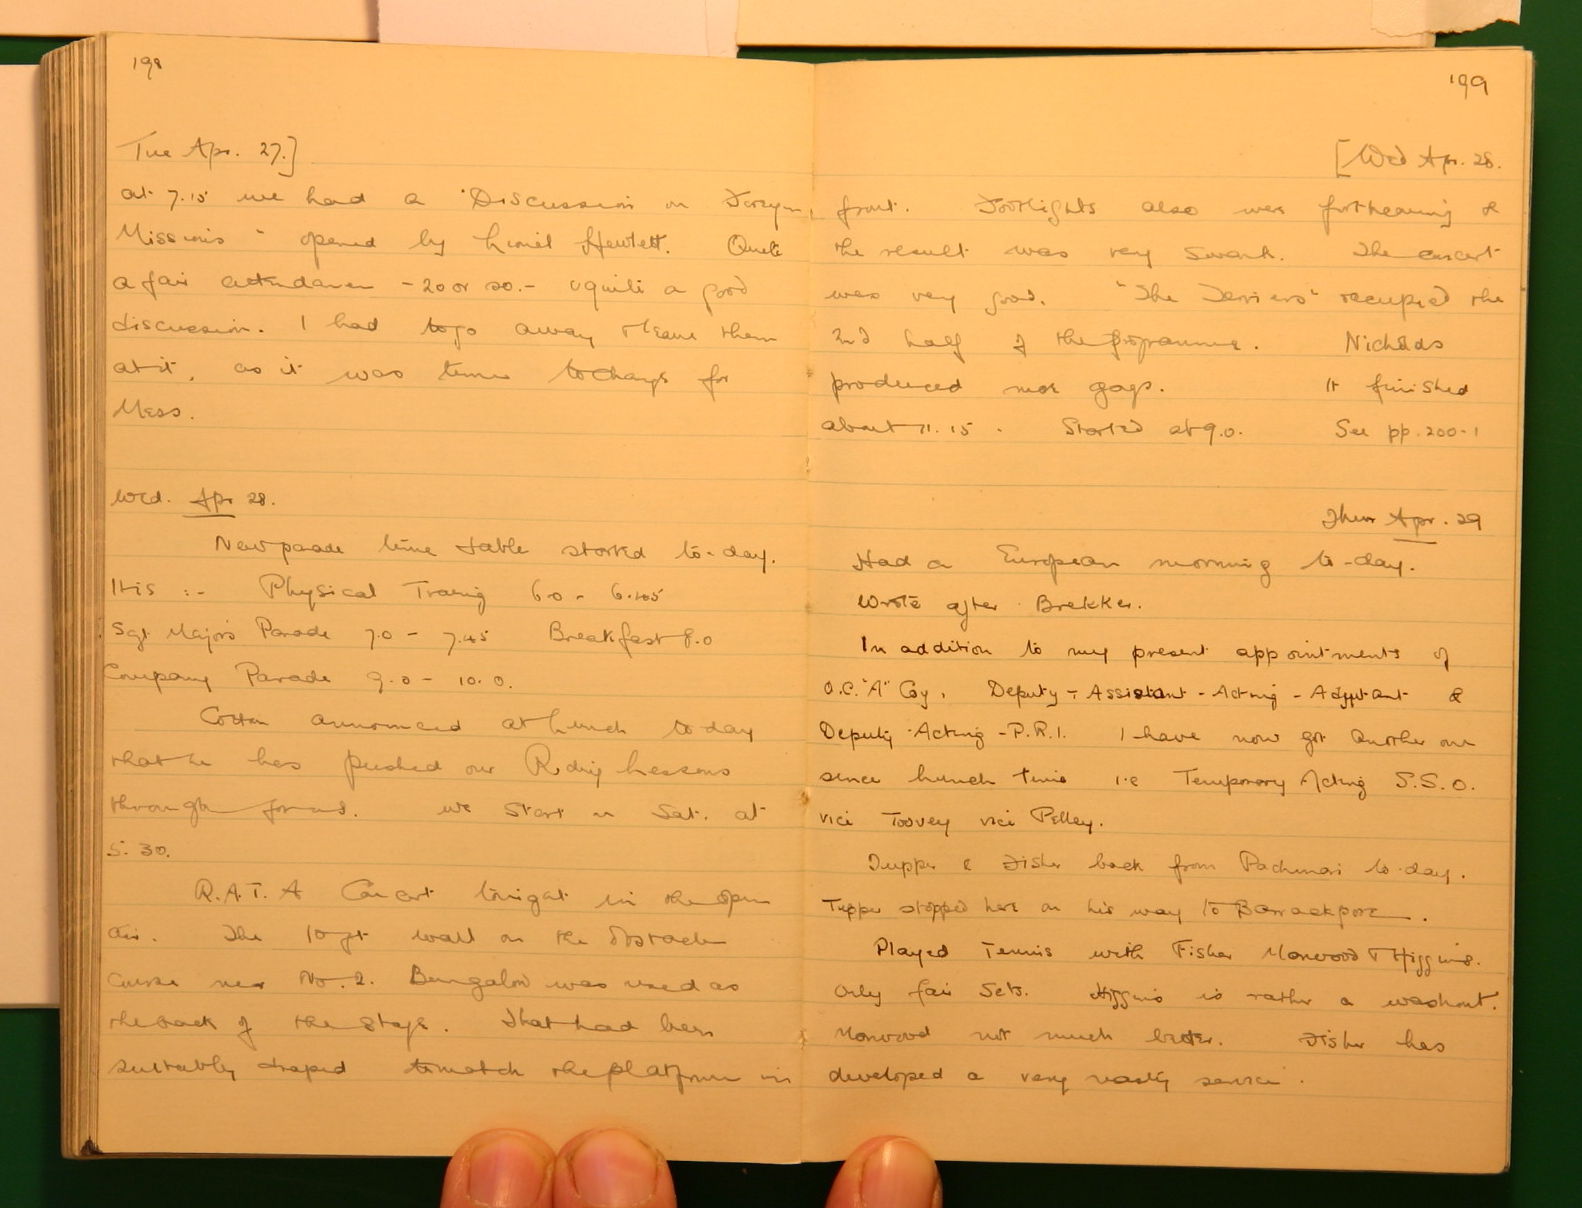 198
Tue Apr. 27.]
at 7.15 we had a "Discussion on Foreign
Missions" opened by Lionel Hewlett. Quite
a fair attendance - 20 or so. - & quite a good
discussion. I had to go away & leave them
at it, as it was time to change for
Mess.
Wed. Apr 28.
New parade time table started to-day.
It is :- Physical Training 6.0 - 6.45
Sgt Major's Parade 7.0 - 7.45 Breakfast 8.0
Company Parade 9.0 - 10.0.
Cotton announced at lunch to day
that he has pushed our Riding lessons
through for us. We start on Sat. at
5.30.
R.A.T.A Concert tonight in the open
air. The 10 ft wall on the obstacle
course near No. 2. Bungalow was used as
the back of the stage. That had been
suitably draped to match the platform in
199
[Wed Apr. 28.
front. Footlights also were forthcoming &
the result was very swank. The concert
was very good. "The Terriers" occupied the
2nd half of the programme. Nicholas
produced more gags. It finished
about 11.15. Started at 9.0. See pp. 200-1
Thur Apr. 29
Had a European morning to-day.
Wrote after Brekker.
In addition to my present appointments of
O.C. "A" Coy, Deputy - Assistant - Acting - Adjutant &
Deputy - Acting - P.R.I. I have now got another one
since lunch time i.e Temporary Acting S.S.O.
vice Toovey vice Pelley.
Tupper & Fisher back from Pachmari to-day.
Tupper stopped here on his way to Barrackpore.
Played Tennis with Fisher Norwood & Higgins.
Only fair sets. Higgins is rather a washout.
Norwood not much better. Fisher has
developed a very nasty service.